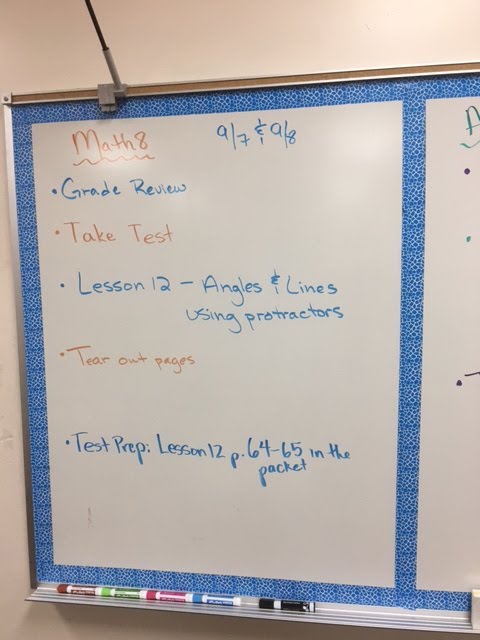 Math 8 9/7 & 9/8
• Grade Review
• Take Test
• Lesson 12 - Angles & Lines
using protractors
• Tear out pages
• Test Prep: Lesson 12 p. 64-65 in the
packet